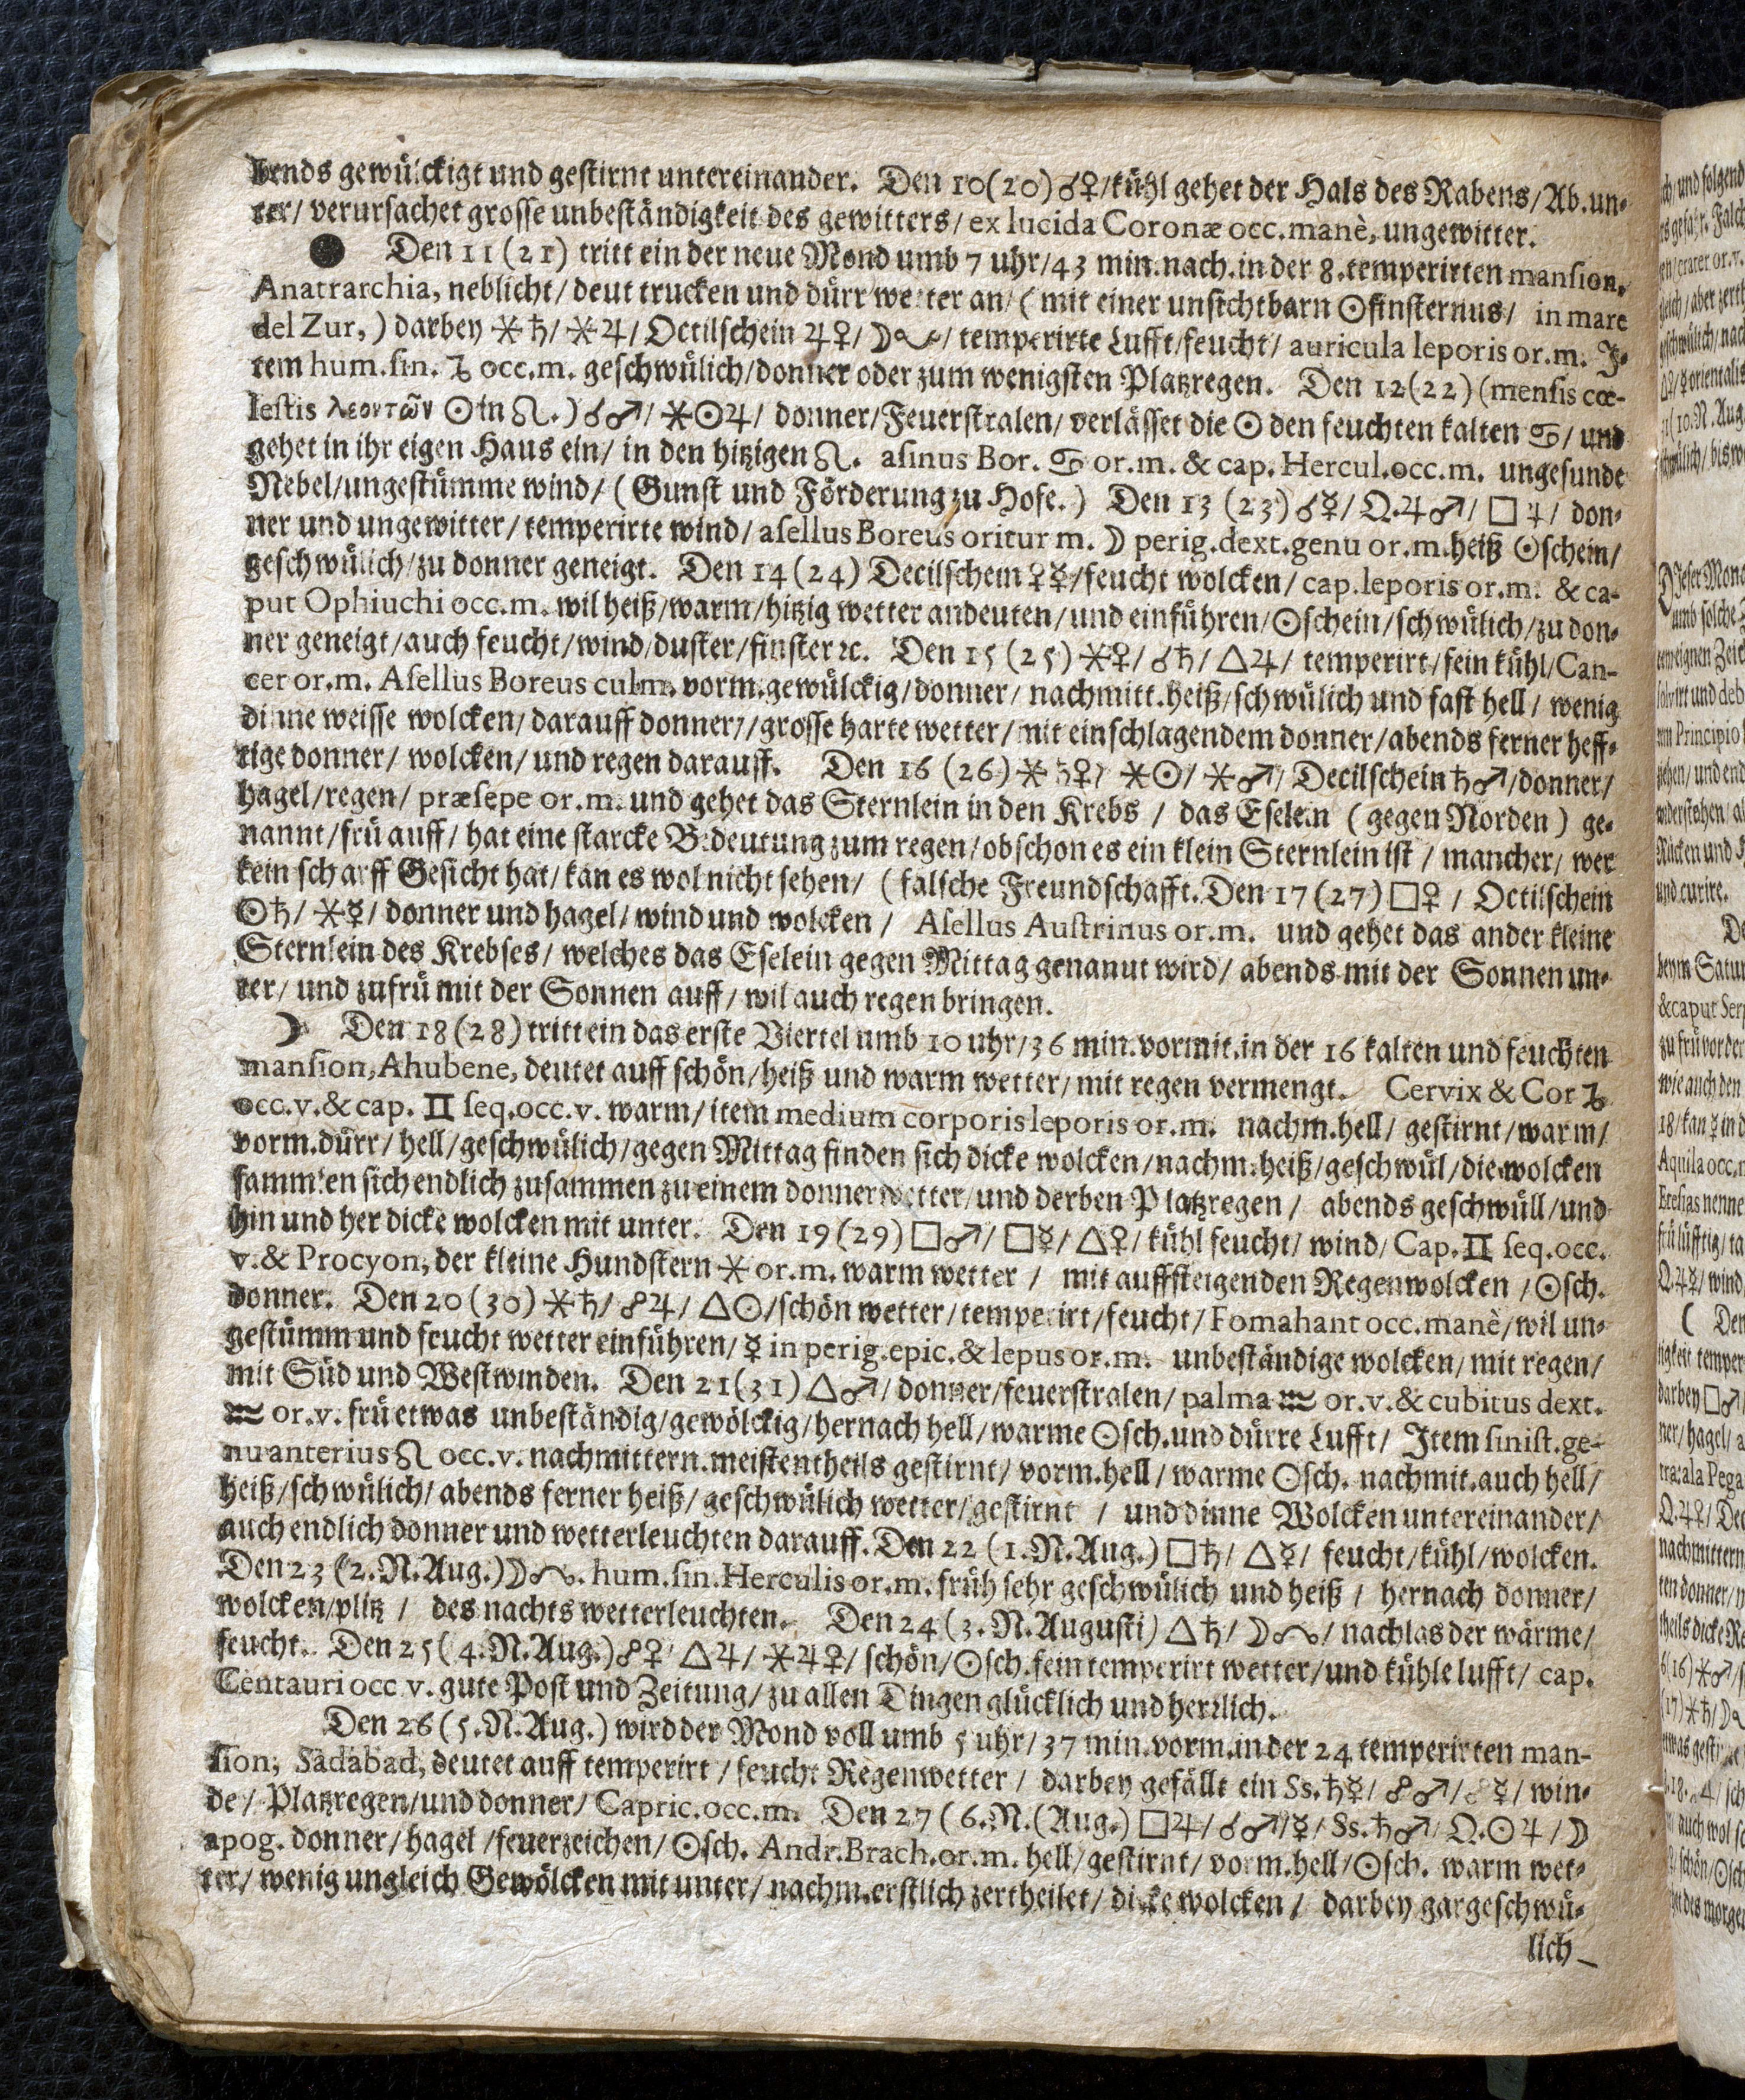 bends gewülckigt und gestirnt untereinander. Den 10(20)☌♀/kühl gehet der Hals des Rabens/Ab.un-
ter/ verursachet grosse unbeständigkeit des gewitters/ ex lucida Coronæ occ.manè, ungewitter.
● Den 11(21) tritt ein der neue Mond umb 7 uhr/43 min.nach.in der 8.temperirten mansion,
Anatrarchia, neblicht/ deut trucken und dürr wetter an/ (mit einer unsichtbarn ☉finsternus/ in mare
del Zur,) darbey ⚹♄/⚹♃/ Octilschein ♃♀/☽☋/ temperirte Lufft/feucht/ auricula leporis or.m. J-
tem hum.sin. ♑ occ.m. geschwülich/donner oder zum wenigsten Platzregen. Den 12(22)(mensis cœ-
lestis λεοντῶν ☉in ♌.)☌♂/⚹☉♃/ donner/Feuerstralen/ verlässet die ☉ den feuchten kalten ♋/ und
gehet in ihr eigen Haus ein/ in den hitzigen ♌. asinus Bor. ♋ or.m. & cap. Hercul.occ.m. ungesunde
Nebel/ungestümme wind/ (Gunst und Förderung zu Hofe.) Den 13 (23)☌☿/ Q.♃♂/ □♃/ don-
ner und ungewitter/temperirte wind/asellus Boreus oritur m. ☽ perig.dext.genu or.m.heiß ☉schein/
geschwülich/zu donner geneigt. Den 14(24) Decilschein ♀☿/feucht wolcken/ cap.leporis or.m. & ca-
put Ophiuchi occ.m. wil heiß/warm/hitzig wetter andeuten/und einführen/☉schein/schwülich/zu don-
ner geneigt/auch feucht/wind/duster/finster ꝛc. Den 15(25)⚹♀/☌♄/△♃/ temperirt/fein kühl/Can-
cer or.m. Asellus Boreus culm. vorm.gewülckig/donner/ nachmitt.heiß/schwülich und fast hell/ wenig
dinne weisse wolcken/ darauff donner//grosse harte wetter/mit einschlagendem donner/abends ferner heff-
tige donner/ wolcken/ und regen darauff. Den 16 (26)⚹♄♀/ ⚹☉/⚹♂/ Decilschein ♄♂/donner/
hagel/regen/ præsepe or.m. und gehet das Sternlein in den Krebs / das Eselein (gegen Norden) ge-
nannt/frü auff/ hat eine starcke Bedeutung zum regen/ob schon es ein klein Sternlein ist / mancher/ wer
kein scharff Gesicht hat/ kan es wol nicht sehen/ (falsche Freundschafft. Den 17(27)□♀ / Octilschein
☉♄/⚹☿/ donner und hagel/ wind und wolcken / Asellus Austrinus or.m. und gehet das ander kleine
Sternlein des Krebses/ welches das Eselein gegen Mittag genanut wird/ abends mit der Sonnen un-
ter/ und zufrü mit der Sonnen auff/ wil auch regen bringen.
☽ Den 18(28) tritt ein das erste Viertel umb 10 uhr/36 min.vormit.in der 16 kalten und feuchten
mansion,Ahubene, deutet auff schön/heiß und warm wetter/mit regen vermengt. Cervix & Cor ♑
occ.v.& cap. ♊ seq.occ.v. warm/item medium corporis leporis or.m. nachm.hell/ gestirnt/warm/
vorm.dürr/ hell/geschwülich/gegen Mittag finden sich dicke wolcken/nachm.heiß/geschwül/die wolcken
sammlen sich endlich zusammen zu einem donnerwetter/und derben Platzregen / abends geschwüll/und
hin und her dicke wolcken mit unter. Den 19(29)□♂/□☿/△♀/kühl feucht/ wind/Cap.♊ seq.occ.
v.& Procyon, der kleine Hundstern ⚹ or.m. warm wetter / mit auffsteigenden Regenwolcken /☉sch.
donner. Den 20(30)⚹♄/☍♃/△☉/schön wetter/temperirt/feucht/Fomahant occ.manè/wil un-
gestümm und feucht wetter einführen/☿ in perig.epic.& lepus or.m. unbeständige wolcken/mit regen/
mit Süd und Westwinden. Den 21(31)△♂/ donner/feuerstralen/ palma ♒ or.v.& cubitus dext.
♒ or.v. frü etwas unbeständig/gewölckig/hernach hell/warme ☉sch.und dürre Lufft/ Jtem sinist.ge-
nu anterius ♌ occ.v. nachmittern.meistentheils gestirnt/ vorm.hell/warme ☉sch. nachmit.auch hell/
heiß/schwülich/ abends ferner heiß/ geschwülich wetter/gestirnt / und dinne Wolcken untereinander/
auch endlich donner und wetterleuchten darauff. Den 22 (1.N.Aug.)□♄/△☿/ feucht/kühl/wolcken.
Den 23 (2.N.Aug.)☽☊. hum.sin.Herculis or.m. früh sehr geschwülich und heiß / hernach donner/
wolcken/plitz / des nachts wetterleuchten. Den 24 (3.N.Augusti)△♄/☽☊/ nachlas der wärme/
feucht. Den 25(4.N.Aug.)☍♀/△♃/⚹♃♀/ schön/☉sch.fein temperirt wetter/und kühle lufft/ cap.
Centauri occ v. gute Post und Zeitung/ zu allen Dingen glücklich und herrlich.
Den 26 (5.N.Aug.) wird der Mond voll umb 5 uhr/37 min.vorm.in der 24 temperirten man-
sion, Sadabad, deutet auff temperirt / feucht Regenwetter / darbey gefällt ein Ss.♄☿/☍♂/☍☿/ win-
de/ Platzregen/und donner/ Capric.occ.m. Den 27 (6.N.(Aug.)□♃/☌♂/☿/ Ss.♄♂/ Q.☉♃/☽
apog. donner/hagel/feuerzeichen/☉sch. Andr.Brach.or.m. hell/gestirnt/ vorm.hell/☉sch. warm wet-
ter/ wenig ungleich Gewölcken mit unter/nachm.erstlich zertheilet/ dicke wolcken / darbey gar geschwü-
lich